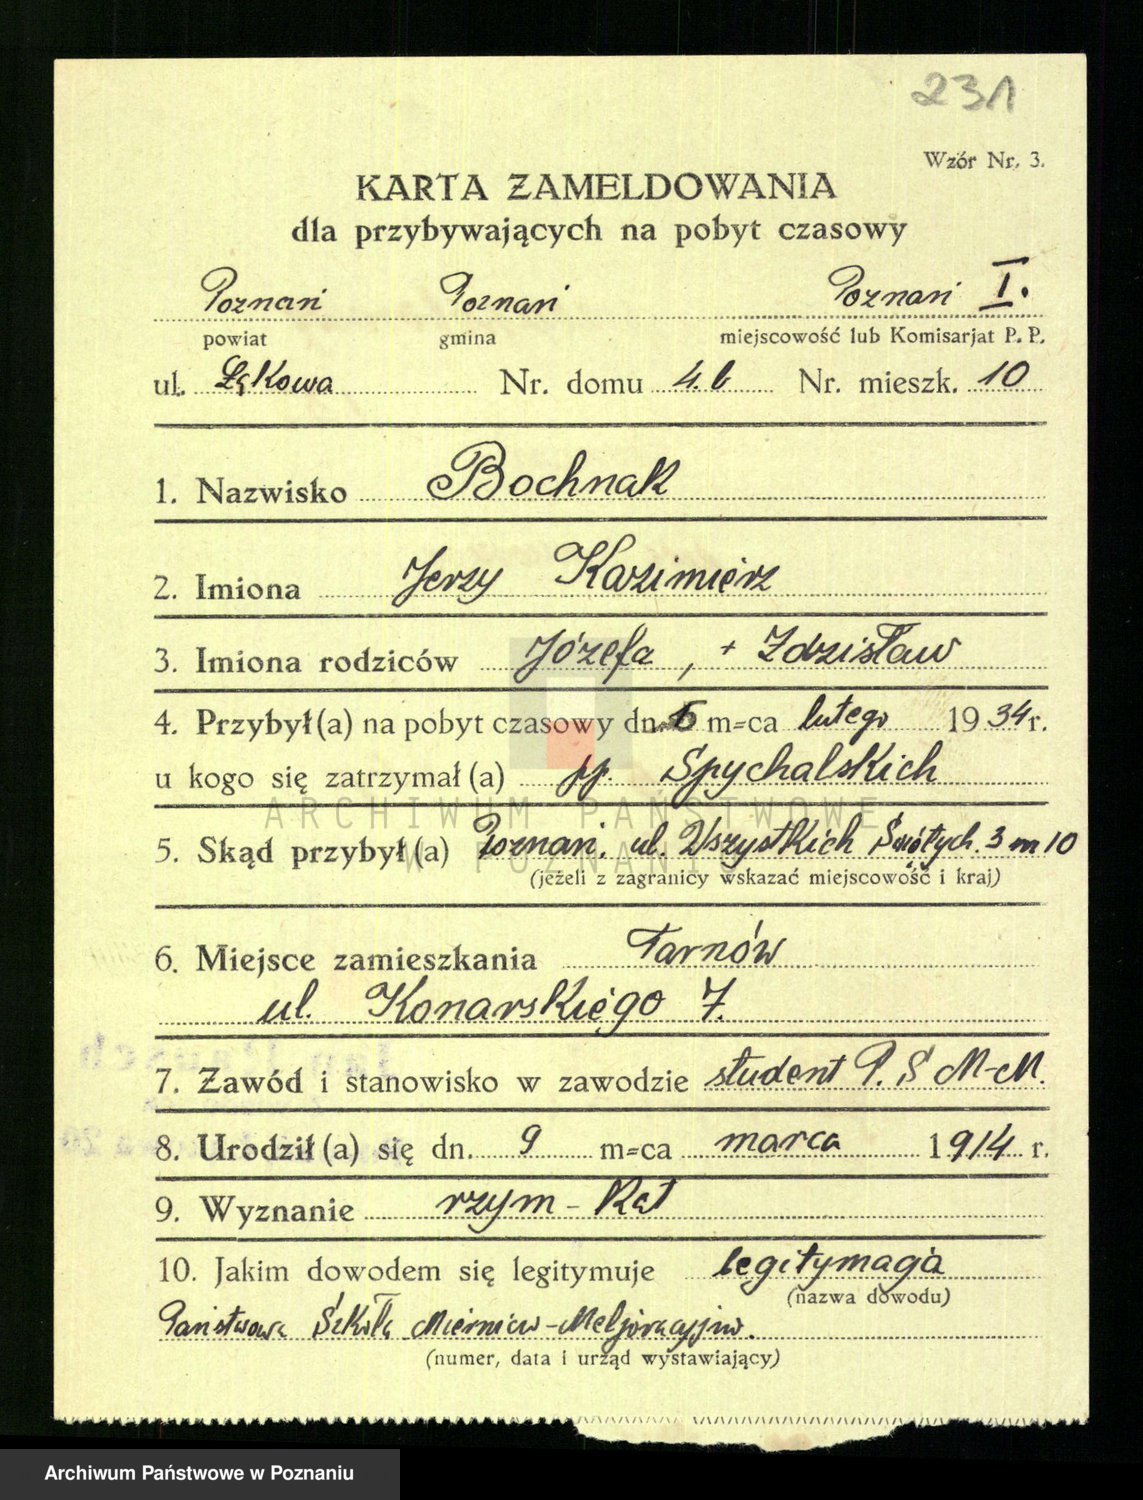 231
Wzór Nr. 3.
KARTA ZAMELDOWANIA
dla przybywających na pobyt czasowy
Poznań Poznań Poznań I.
powiat gmina miejscowość lub Komisarjat P. P.
ul. Łąkowa Nr. domu 4.b Nr. mieszk. 10
1. Nazwisko Bochnak
2. Imiona Jerzy Kazimierz
3. Imiona rodziców Józefa, + Zdzisław
4. Przybył(a) na pobyt czasowy dn. m=ca lutego 1934 r.
u kogo się zatrzymał(a) pp. Spychalskich
5. Skąd przybył(a) Poznań, ul. Wszystkich Świętych. 3 m 10
(jeżeli z zagranicy wskazać miejscowość i kraj)
6. Miejsce zamieszkania Tarnów
ul. Konarskiego 7.
7. Zawód i stanowisko w zawodzie student P. S M-M.
8. Urodził(a) się dn. 9 m=ca marca 1914 r.
9. Wyznanie rzym-kat
10. Jakim dowodem się legitymuje legitymacja
(nazwa dowodu)
Państwowa Szkoła Mierniw-Meljoracyjnw.
(numer, data i urząd wystawiający)
ARCHIWUM PAŃSTWOWE
W POZNANIU
Archiwum Państwowe w Poznaniu